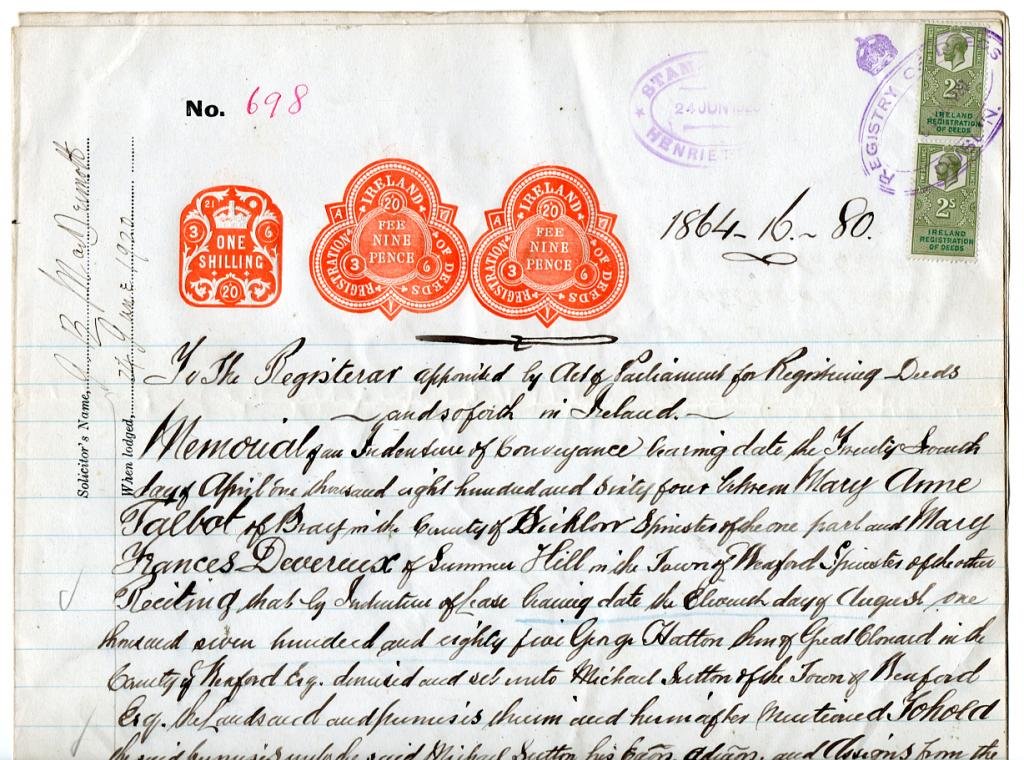 No. 698
STAM
24 JUN 192
HENRIET
REGISTRY O
2S
IRELAND
REGISTRATION
OF DEEDS
2S
IRELAND
REGISTRATION
OF DEEDS
21
3 6
ONE
SHILLING
20
IRELAND
REGISTRATION OF DEEDS
A 20
FEE
NINE
PENCE
3 6
IRELAND
REGISTRATION OF DEEDS
A 20
FEE
NINE
PENCE
3 6
1864 - 16. - 80.
Solicitor's Name, MacDermott
When lodged, 24 June 1920
To The Registerar appointed by Act of Parliament for Registering Deeds
and so forth in Ireland.
Memorial of an Indenture of Conveyance bearing date the Twenty Seventh
day of April one thousand eight hundred and sixty four between Mary Anne
Talbot of Bray in the County of Wicklow Spinster of the one part and Mary
Frances Devereux of Summer Hill in the Town of Wexford Spinster of the other
Reciting that by Indenture of Lease bearing date the Eleventh day of August one
thousand seven hundred and eighty five George Hatton then of Great Clonard in the
County of Wexford Esq. demised and set unto Michael Sutton of the Town of Wexford
Esq. the Lands and premises therein and hereinafter Mentioned To hold
the said premises unto the said Michael Sutton his Exors admors and Assigns from the